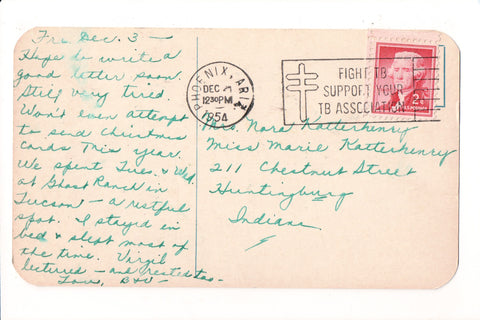 Fri. Dec. 3 —
Hope to write a
good letter soon.
Still very tired.
Won't even attempt
to send Christmas
cards this year.
We spent Tues. & Wed.
at Ghost Ranch in
Tucson — a restful
spot. I stayed in
bed & slept most of
the time. Virgil
lectured — and rested too —
Love, B & V —
PHOENIX, ARIZ.
DEC
12 30 PM
1954
FIGHT TB
SUPPORT YOUR
TB ASSOCIATION
2¢
Mrs. Nora Katterhenry
Miss Marie Katterhenry
211 Chestnut Street
Huntingburg
Indiana